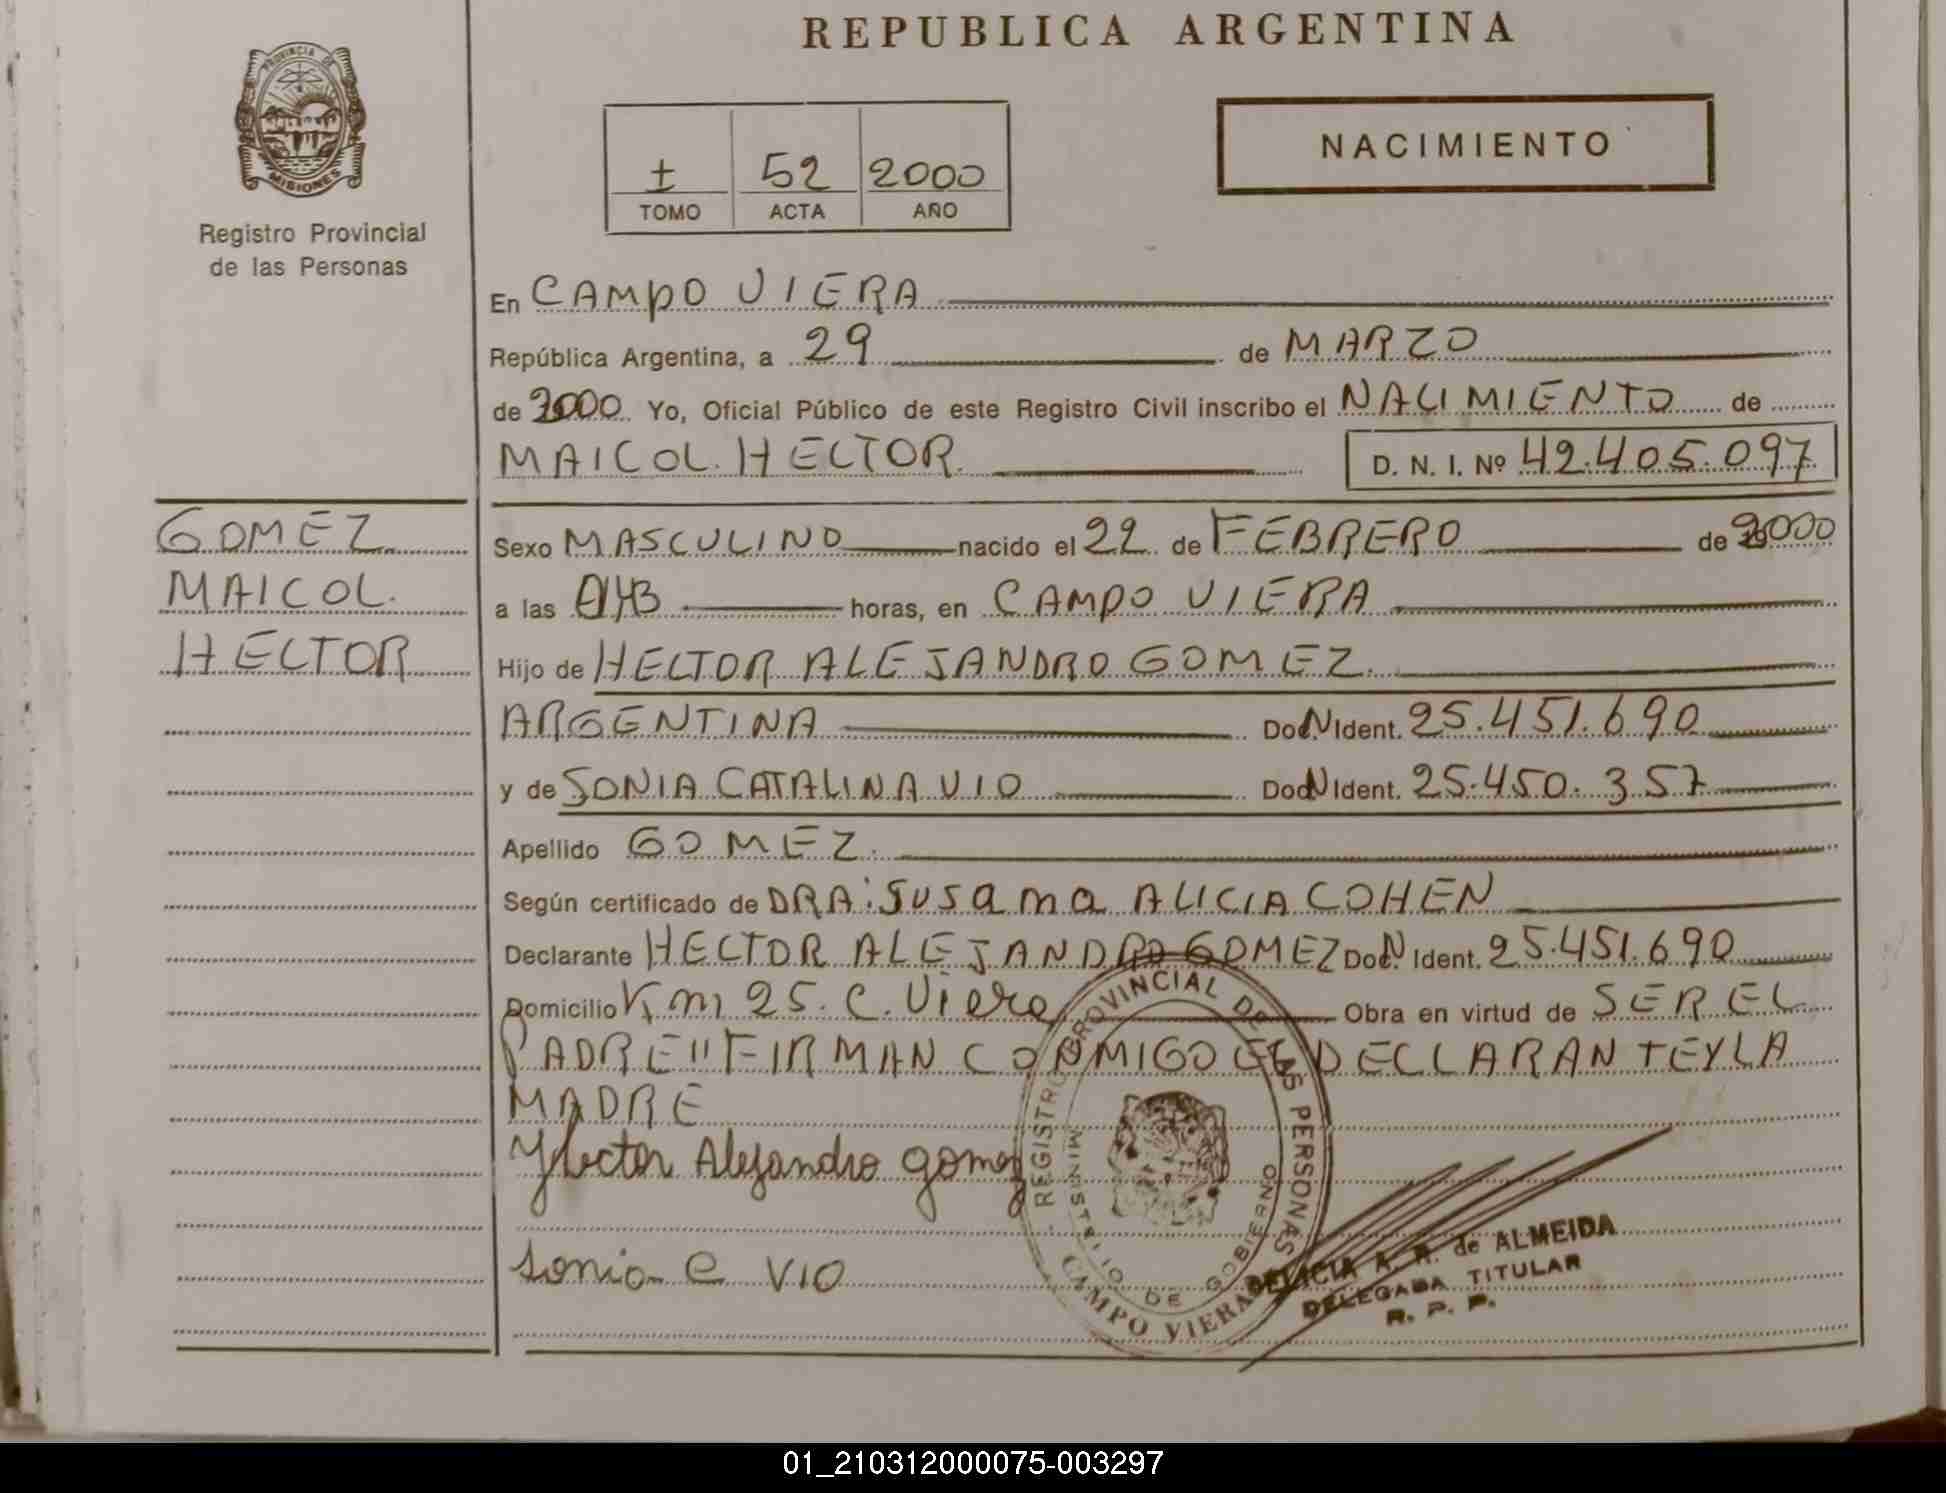 REPUBLICA ARGENTINA
PROVINCIA DE MISIONES
Registro Provincial
de las Personas
I 52 2000
TOMO ACTA AÑO
NACIMIENTO
En CAMPO VIERA
República Argentina, a 29 de MARZO
de 2000 Yo, Oficial Público de este Registro Civil inscribo el NACIMIENTO de
MAICOL HECTOR D. N. I. Nº 42.405.097
GOMEZ
MAICOL
HECTOR
Sexo MASCULINO nacido el 22 de FEBRERO de 2000
a las horas, en CAMPO VIERA
Hijo de HECTOR ALEJANDRO GOMEZ
ARGENTINA Ident. 25.451.690
y de SONIA CATALINA VIO Ident. 25.450.357
Apellido GOMEZ
Según certificado de DRA: SUSANA ALICIA COHEN
Declarante HECTOR ALEJANDRO GOMEZ Ident. 25.451.690
Domicilio Km 25. C. Viera Obra en virtud de SER EL
PADRE" FIRMAN CONMIGO EL DECLARANTE Y LA
MADRE
Hector Alejandro gomez
Sonia C VIO
REGISTRO PROVINCIAL DE LAS PERSONAS
MINISTERIO DE GOBIERNO
CAMPO VIERA
DELICIA A. R. de ALMEIDA
DELEGADA TITULAR
R. P. P.
01_210312000075-003297